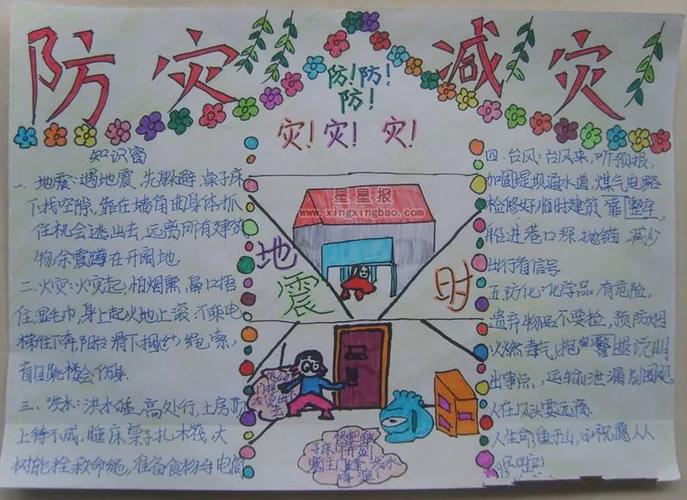 防灾 减灾
防!防!
防!
灾!灾!灾!
星星报
xingxingbao.com
地震时
知识窗
一、地震:遇地震,先躲避,桌子床
下找空隙,靠在墙角曲身体,抓
住机会逃出去,远离所有建筑
物,余震蹲在开阔地.
二、火灾:火灾起,怕烟熏,鼻口捂
住湿毛巾,身上起火地上滚,不乘电
梯往下奔,阳台滑下捆绳索,
盲目跳楼会伤身.
三、洪水:洪水猛,高处行,土房顶
上待不成,临床桌子扎木筏,大
树能拴救命绳,准备食物手电筒
四、台风:台风来,听预报,
加固堤坝通水道,煤气电路
检修好,临时建筑
船进港口深地锚,减少
出行看信号
五、防化:化学品,有危险,
遗弃物品不要捡,预防烟
火燃毒气,报警说明
出事点,运输泄漏别围观,
人在风头要远离
人生命重于山